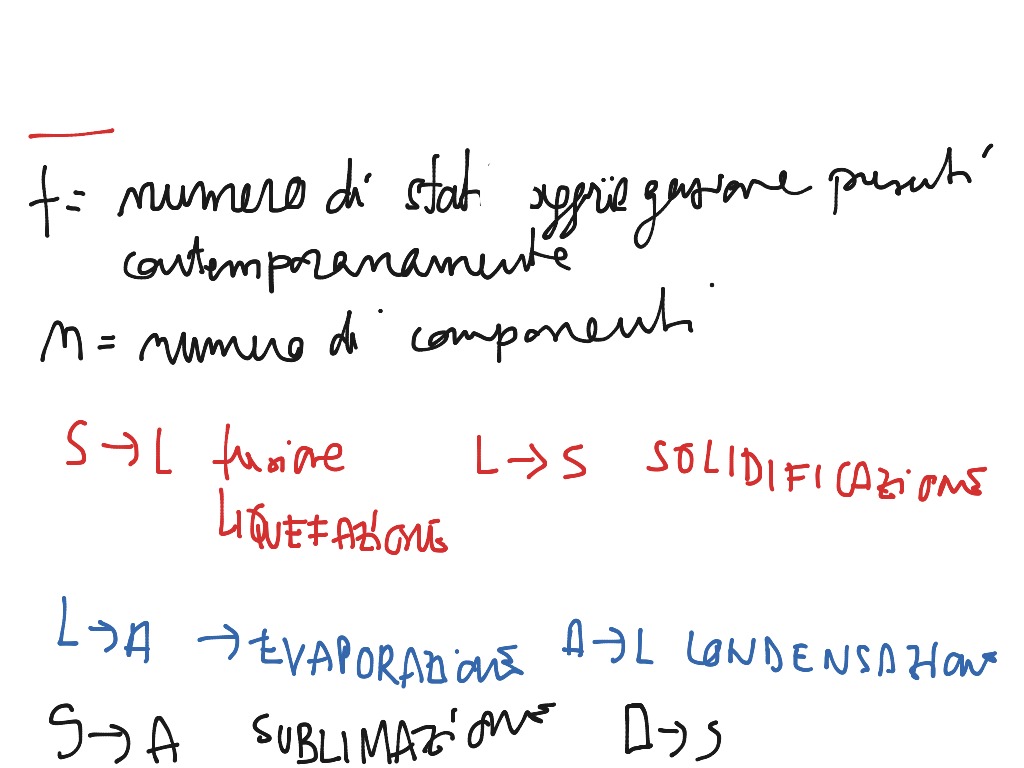 f = numero di stati aggregazione presenti
contemporaneamente
n = numero di componenti
S → L fusione L → S SOLIDIFICAZIONE
LIQUEFAZIONE
L → A → EVAPORAZIONE A → L CONDENSAZIONE
S → A SUBLIMAZIONE A → S